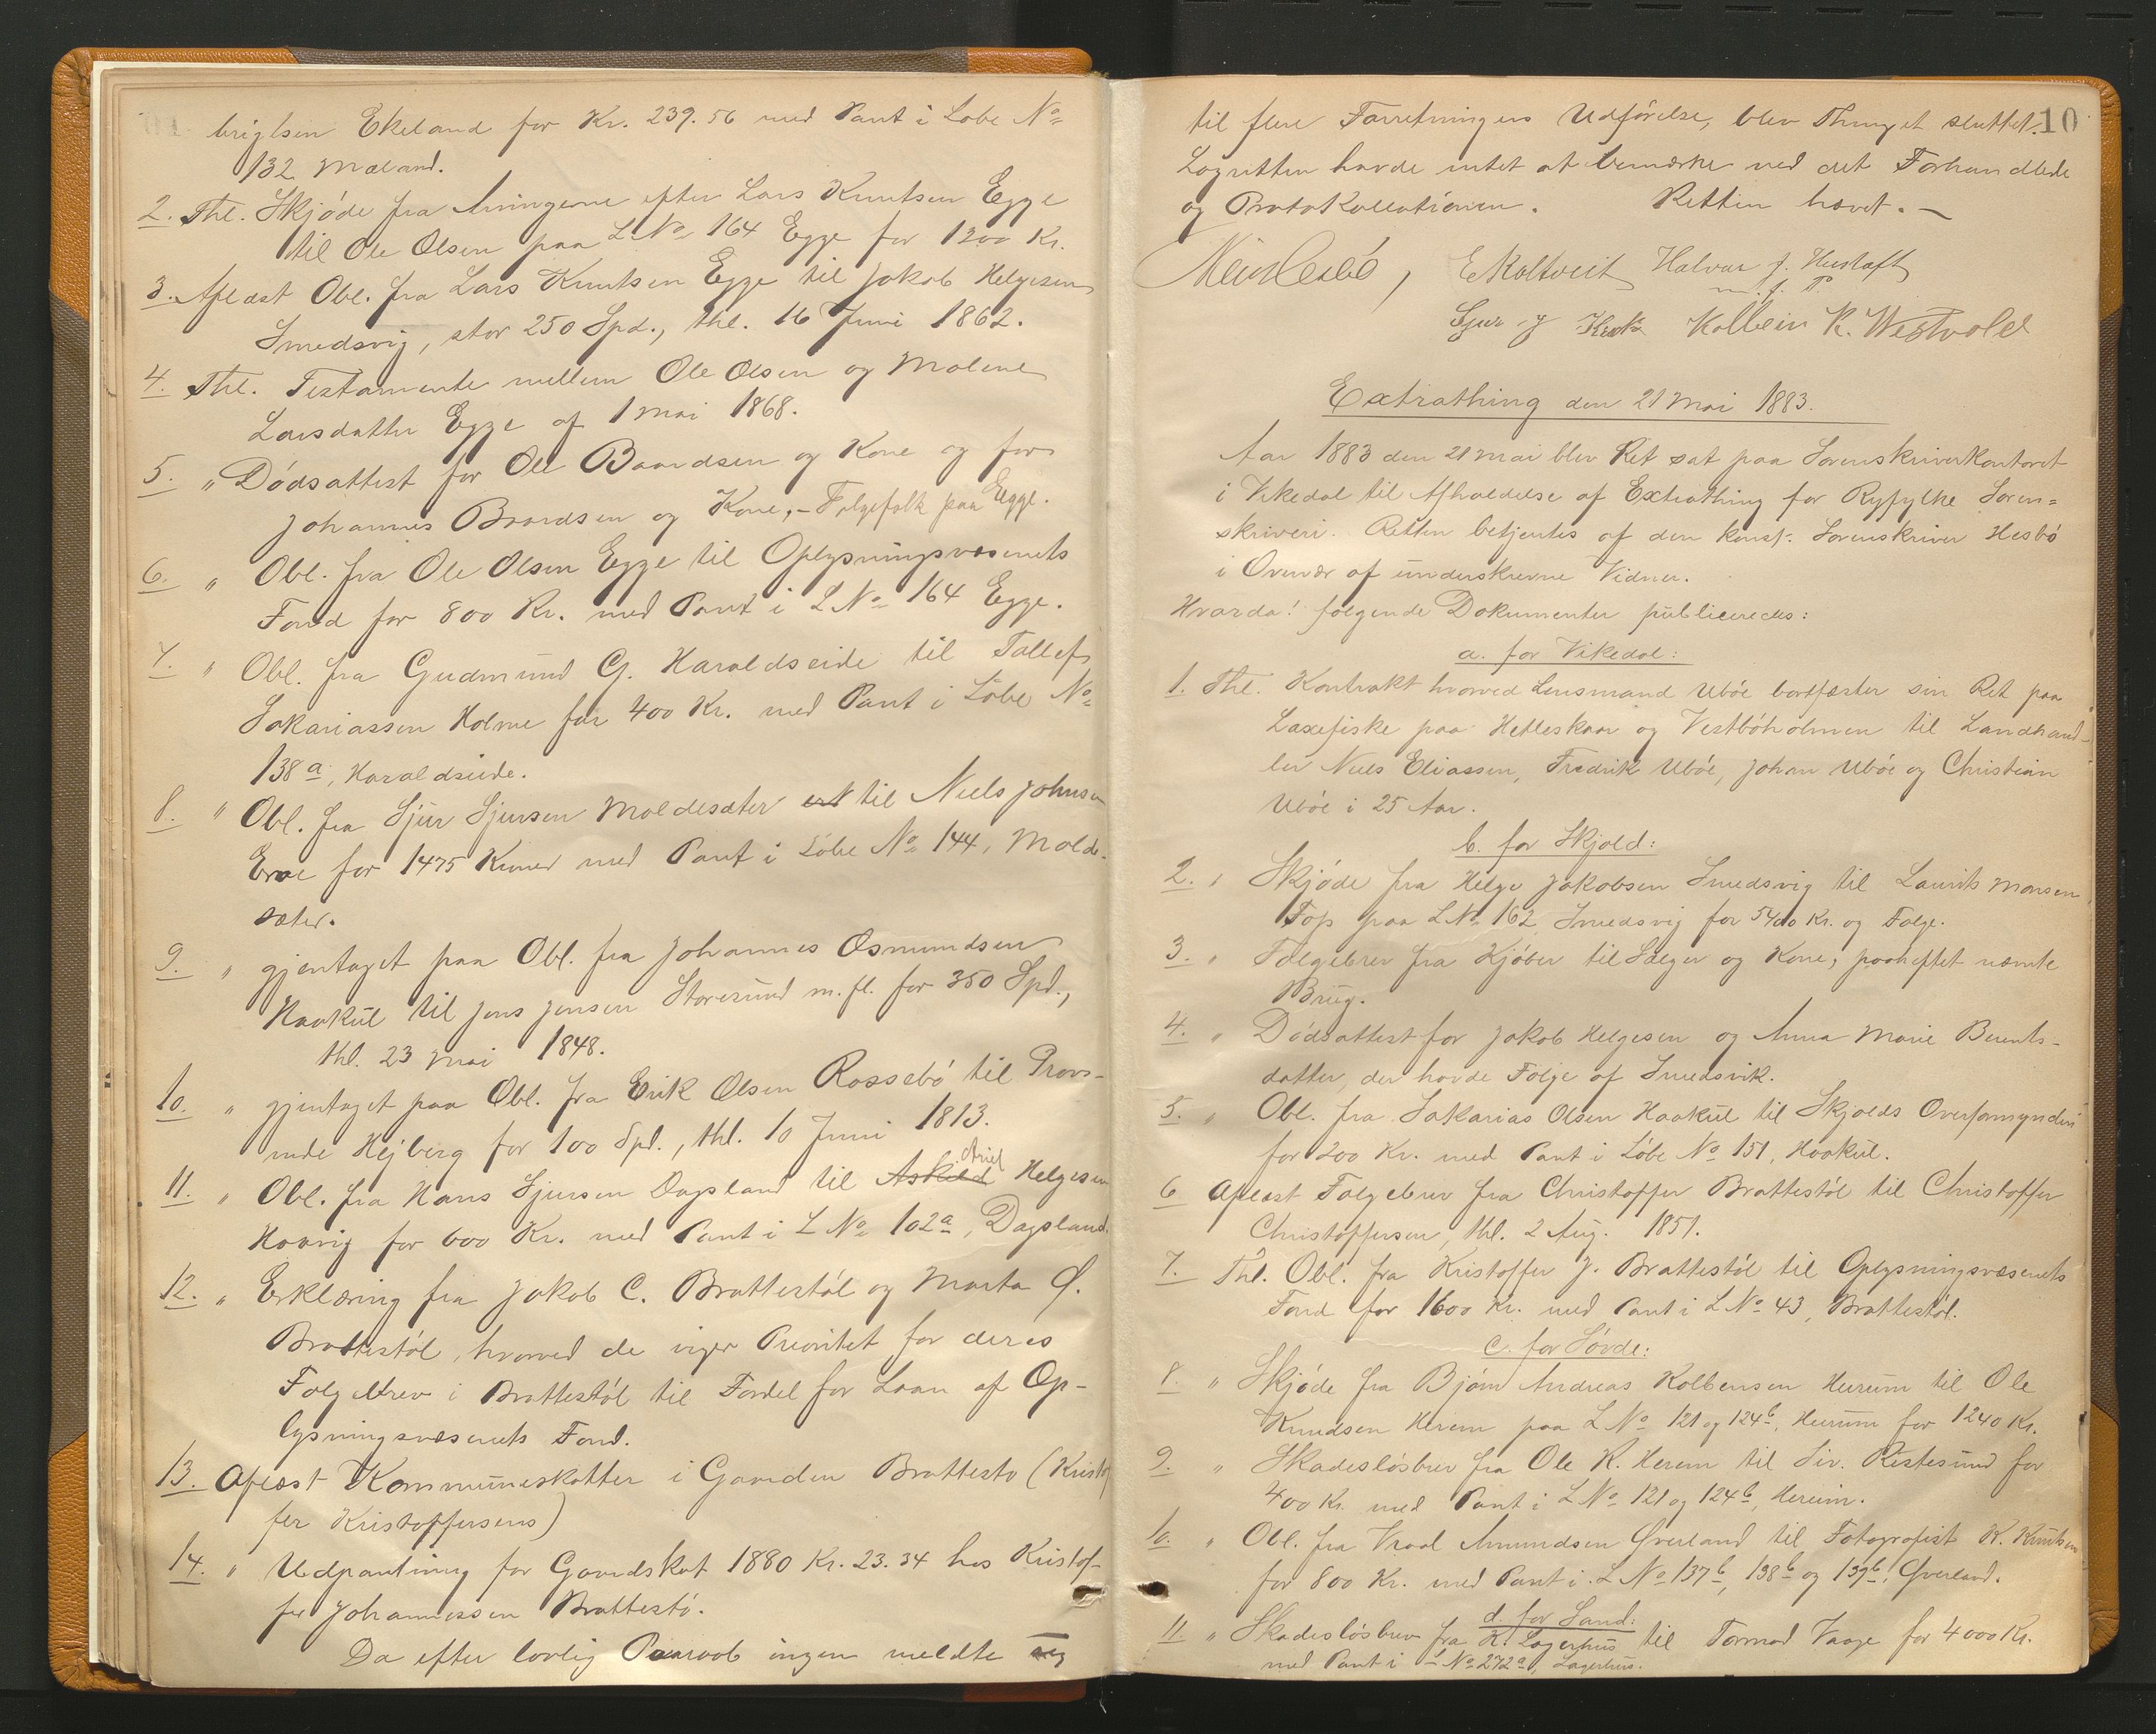 brigtsen Ekeland for Kr. 239.56 med Pant i Løbe No
132 Mæland.
2. Thl. Skjøde fra Arvingerne efter Lars Knutsen Egge
til Ole Olsen paa L No 164 Egge for 1200 Kr.
3. Aflæst Obl. fra Lars Knutsen Egge til Jakob Helgesen
Smedsvig, stor 250 Spd., thl. 16 Juni 1862.
4. Thl. Testamente mellem Ole Olsen og Malene
Larsdatter Egge af 1 Mai 1868.
5. " Dødsattest for Ole Baardsen og Kone og for
Johannes Baardsen og Kone, - Følgefolk paa Egge.
6. " Obl. fra Ole Olsen Egge til Oplysningsvæsenets
Fond for 800 Kr. med Pant i L No 164 Egge.
7. " Obl. fra Gudmund G. Haraldseide til Tallef
Sakariassen Holme for 400 Kr. med Pant i Løbe No
138a, Haraldseide.
8. " Obl. fra Sjur Sjursen Moldesæter til Niels Johnsen
Erøe for 1475 Kroner med Pant i Løbe No 144, Molde-
sæter.
9. " gjentaget paa Obl. fra Johannes Osmundsen
Haakul til Jens Jensen Storesund m.fl. for 350 Spd.,
thl. 23 Mai 1848.
10. " gjentaget paa Obl. fra Erik Olsen Rossebø til Provs-
inde Hejberg for 100 Spd., thl. 10 Juni 1813.
11. " Obl. fra Hans Sjursen Dagsland til Askild Helgesen
Haavig for 600 Kr. med Pant i L No 102a, Dagsland.
12. " Erklæring fra Jakob C. Brattestøl og Marta O.
Brattestøl, hvorved de viger Prioritet for deres
Følgebrev i Brattestøl til Fordel for Laan af Op-
lysningsvæsenets Fond.
13. Aflæst Kommuneskatter i Gaarden Brattestø (Kristof
fer Kristoffersens)
14. " Udpantning for Gaardskat 1880 Kr. 23.34 hos Kristof-
fer Johannessen Brattestø.
Da efter lovlig Paaraab ingen meldte sig
10
til flere Forretningers Udførelse, blev Thinget sluttet.
Lagretten havde intet at bemærke ved det Forhandlede
og Protokollationen. Retten hævet. -
E Koltveit Halvar J.
m.f.P.
Sjur J Kolbein K. Westvold
Extrathing den 21 Mai 1883.
Aar 1883 den 21 Mai blev Ret sat paa Sorenskriverkontoret
i Vikedal til Afholdelse af Extrathing for Ryfylke Soren=
skriveri. Retten betjentes af den konst. Sorenskriver Hesbø
i Overvær af underskrevne Vidner.
Hvorda! følgende Dokumenter publiceredes:
a. for Vikedal:
1. Thl. Kontrakt hvorved Lensmand Ubøe bortfæster sin Ret paa
Laxefiske paa Hetleskaar og Vestbøholmen til Landhand-
ler Niels Eliassen, Fredrik Ubøe, Johan Ubøe og Christian
Ubøe i 25 Aar.
b. for Skjold:
2. " Skjøde fra Helge Jakobsen Smedsvig til Laurits Monsen
Fop paa L No 162, Smedsvig for 5400 Kr. og Følge.
3. " Følgebrev fra Kjøber til Sælger og Kone, paaheftet nævnte
Brug.
4. " Dødsattest for Jakob Helgesen og Anna Marie Berents-
datter, der havde Følge af Smedsvik.
5. " Obl. fra Sakarias Olsen Haakul til Skjolds Overformynderi
for 200 Kr. med Pant i Løbe No 151, Haakul.
6 Aflæst Følgebrev fra Christoffer Brattestøl til Christoffer
Christoffersen, thl. 2 Aug. 1851.
7. Thl. Obl. fra Kristoffer J. Brattestøl til Oplysningsvæsenets
Fond for 1600 Kr. med Pant i L No 43, Brattestøl.
c. for Søvde:
8. " Skjøde fra Bjørn Andreas Kolbensen Herum til Ole
Knudsen Hereim paa L No 121 og 124b, Hereim for 1240 Kr.
9. " Skadesløsbrev fra Ole K. Hereim til Siv. Ristesund for
400 Kr. med Pant i L No 121 og 124b, Hereim.
10. " Obl. fra Vraal Amundsen Øverland til Fotografist K. Knutsen
for 800 Kr. med Pant i L No 137b, 138b og 139b, Øverland.
d. for Sand:
11. " Skadesløsbrev fra K. Lagerhus til Tormod Vaage for 4000 Kr.
med Pant i - No 272a, Lagerhus.